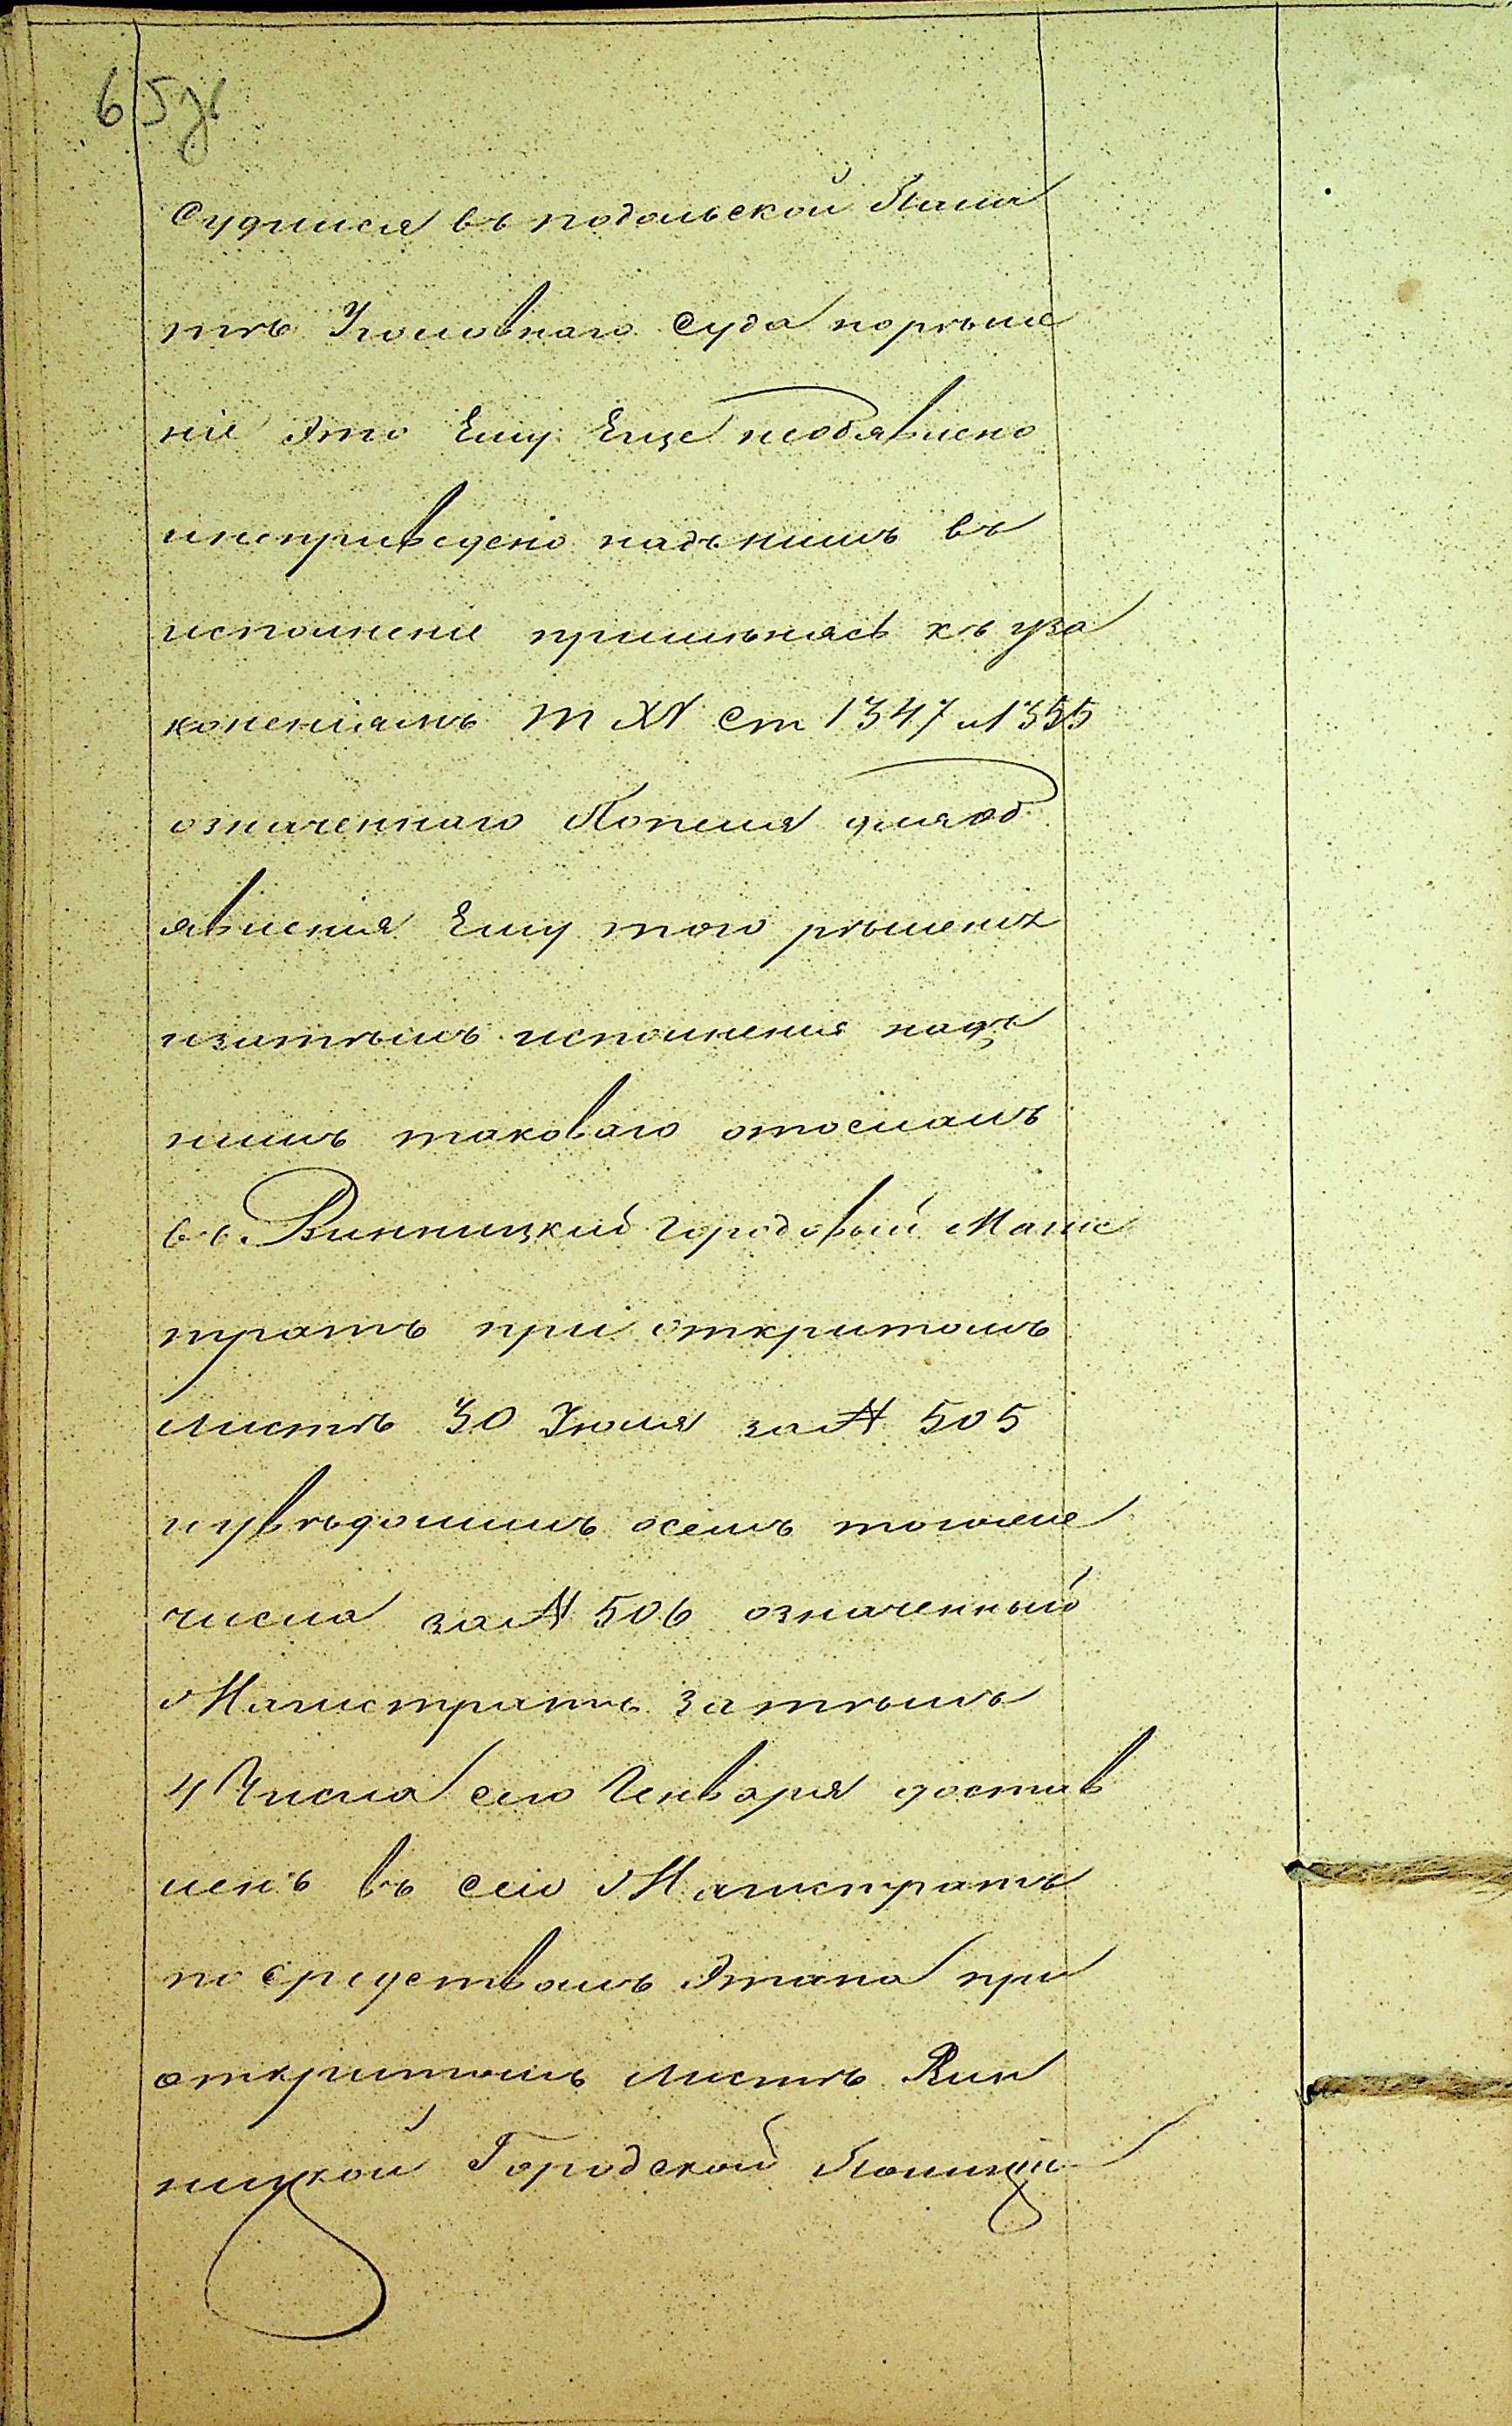 65 зв
Судился въ подольской Пала
тѣ Уголовнаго Суда норѣше
ніе Это Ему Еще необявлено
инеприведено надънимъ въ
исполненіе примѣнясь къ уза
коненіямъ Т XV Ст 1347 и 1355
означеннаго Копеля дляоб
явленія Ему того рѣшенія
изатѣмъ исполненія надъ
нимъ таковаго отосланъ
въ Винницкій Городовый Магис
тратъ при открытомъ
листѣ 30 Іюля за№ 505
иувѣдомимъ осемъ тогоже
числа за№ 506 означенный
Магистратъ затѣмъ
4 Числа сего Генваря достав
ленъ въ сей Магистратъ
по Средствамъ Этапа при
открытомъ листѣ Вин
ницкой Городской Полиціи